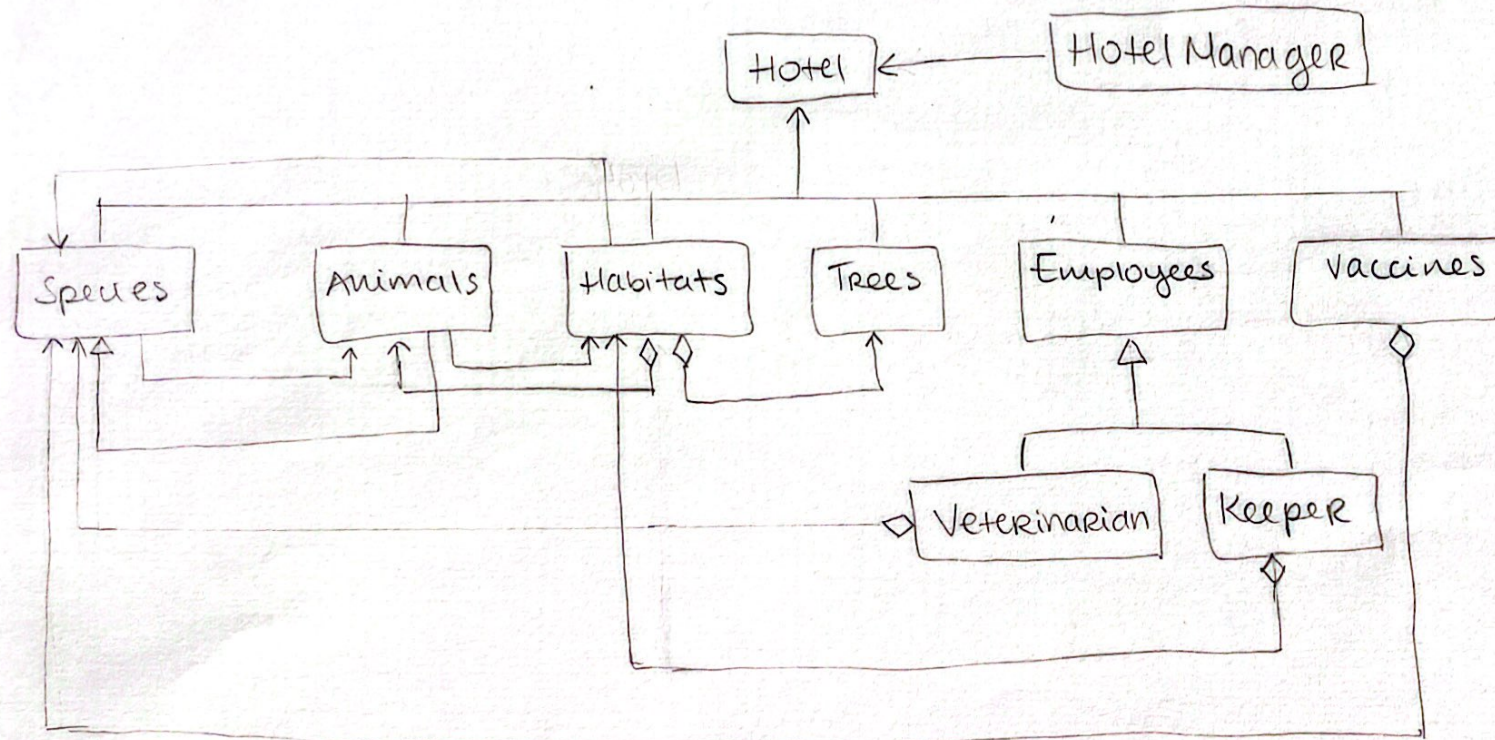 Hotel
Hotel Manager
Species
Animals
Habitats
Trees
Employees
Vaccines
Veterinarian
Keeper